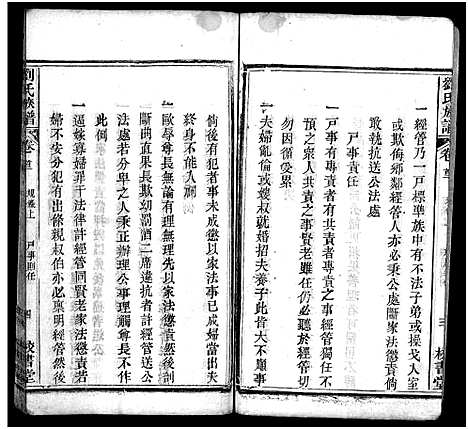 劉氏族譜
卷首
三
校書堂
一經管乃一戶標準族中有不法子弟或操戈入室
或欺侮鄉鄰經管人亦必秉公處斷家法懲責倘
敢抗違送公法處
戶事責任
一戶事有專責者有共責者專責之事經管獨任不
預之衆人共責之事賢老同任仍必聽於經管切
勿因循受累
一夫婦亂倫或接叔就婚招夫養子此皆大不順事
倘後有犯者事未成懲以家法事已成婦當出男
終身不能入廟
一毆辱尊長無論有理無理先以家法懲責然後剖
斷曲直果長欺幼罰酒二席違抗者計經管送公
法處若卑幼果正亦辦理公事理觸尊長者不在
此例
一逼嫁寡婦罪干法律計經管同賢老家法懲責若
婦不安分別有出條親叔伯亦必稟明經管然後
劉氏族譜
卷首
規卷上
戶事責任
四
校書堂